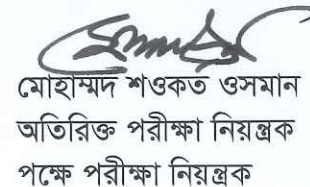 মোহাম্মদ শওকত ওসমান
অতিরিক্ত পরীক্ষা নিয়ন্ত্রক
পক্ষে পরীক্ষা নিয়ন্ত্রক